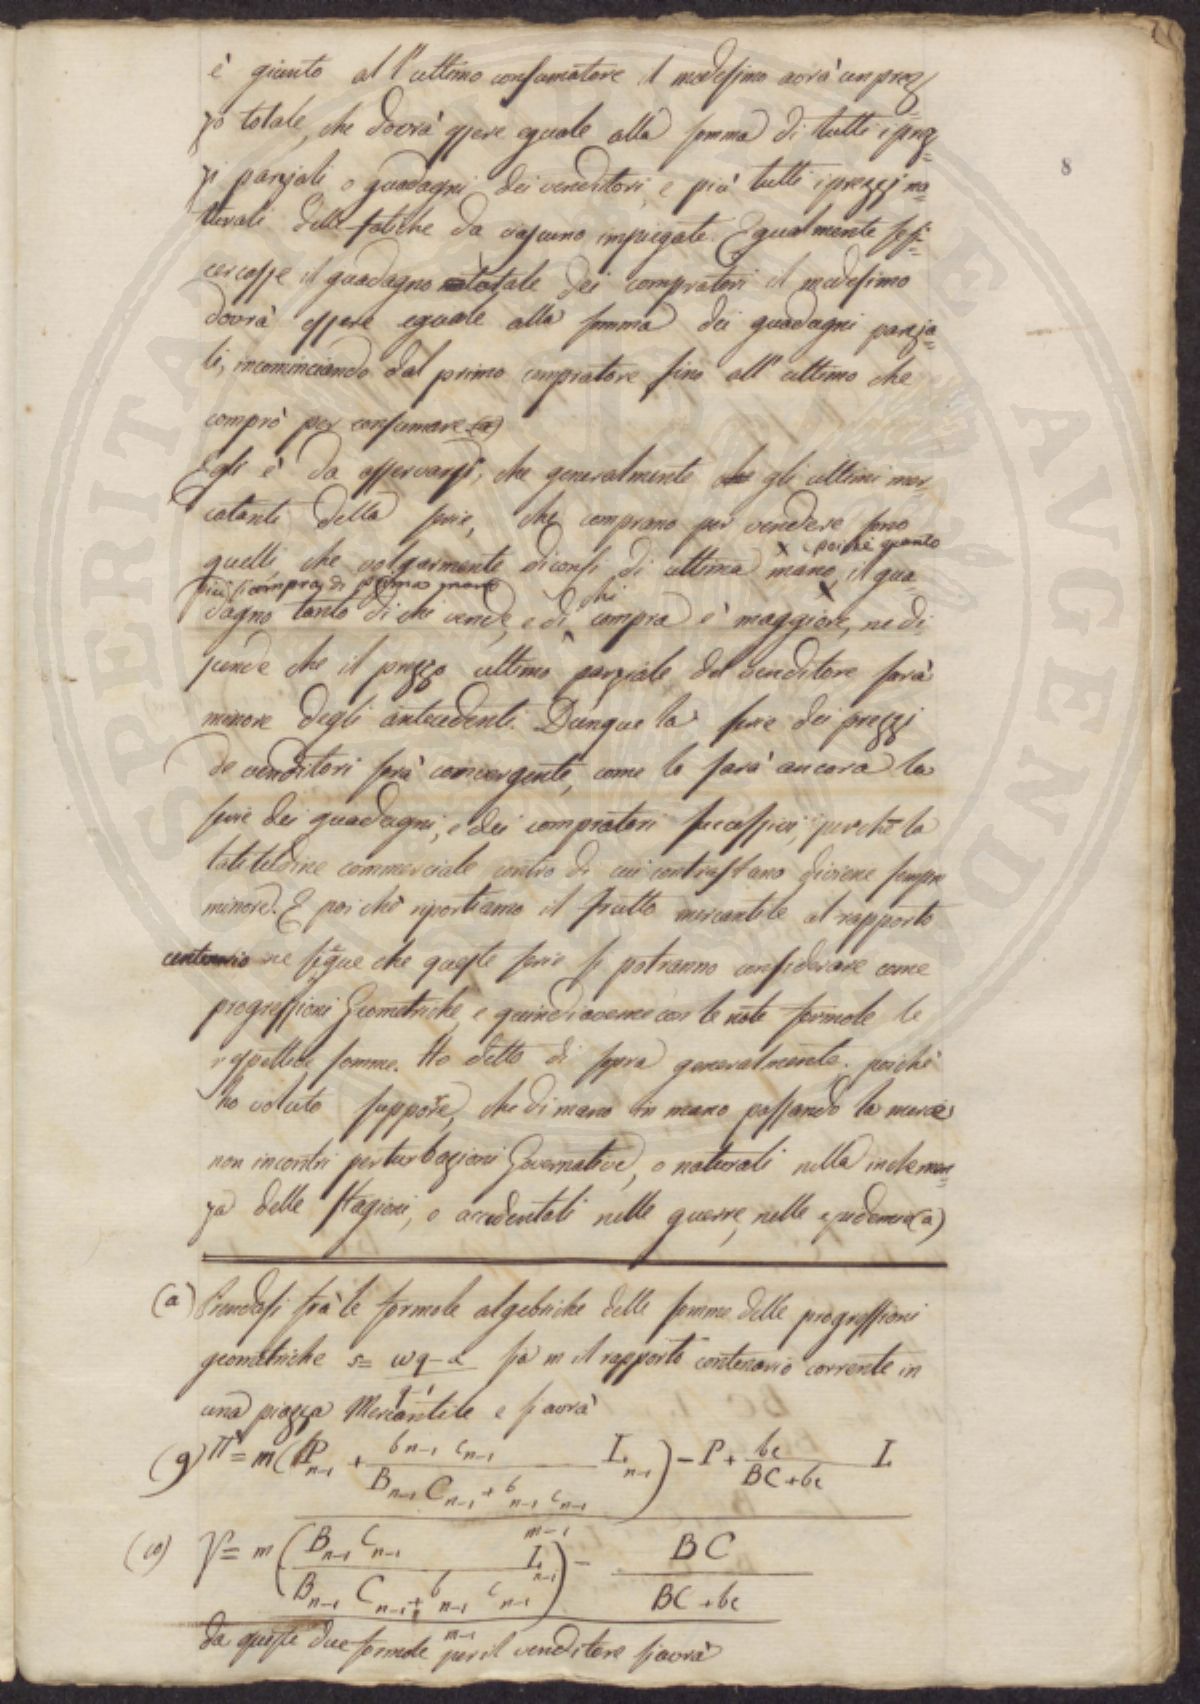 è giunto all'ultimo consumatore il medesimo avrà un prez
zo totale, che dovrà essere eguale alla somma di tutti i prez=
zi parziali o guadagni dei venditori, e più tutti i prezzi na=
turali delle fatiche da ciascuno impiegate. Egualmente se si
cercasse il guadagno totale dei compratori il medesimo
dovrà essere eguale alla somma dei guadagni parzia=
li, incominciando dal primo compratore fino all'ultimo che
comprò per consumare (a)
8
Egli è da osservarsi, che generalmente gli ultimi mer=
catanti della serie, che comprano per vendere sono
quelli che volgarmente diconsi di ultima mano, il gua=
x poiché quanto
più si compra di prima mano
dagno tanto di chi vende, e di chi compra è maggiore, ne di=
scende che il prezzo ultimo parziale del venditore sarà
minore degli antecedenti. Dunque la serie dei prezzi
de venditori sarà convergente, come lo sarà ancora la
serie dei guadagni, e dei compratori successivi, perchè la
latitudine commerciale entro di cui contrastano diviene sempre
minore. E poichè riportiamo il frutto mercantile al rapporto
centenario ne segue che queste serie si potranno considerare come
progressioni Geometriche, e quindi averne con le note formole le
rispettive somme. Ho detto di sopra generalmente, poichè
ho voluto supporre, che di mano in mano passando la merce
non incontri perturbazioni Governative, o naturali nella inclemen=
za delle Stagioni, o accidentali nelle guerre, nelle epidemie (a)
(a) Prendasi frà le formole algebriche delle somme delle progressioni
geometriche s= ωq-α / q-1 sia m il rapporto centenario corrente in
una piazza Mercantile e si avrà
(9) Π = m (P n-1 + b n-1 c n-1 / B n-1 C n-1 + b n-1 c n-1 L n-1) - P + bc / BC + bc L
m-1
(10) V = m (B n-1 C n-1 / B n-1 C n-1 + b n-1 c n-1 L n-1) - BC / BC + bc
m-1
da queste due formole per il venditore si avrà
SPERITAS AVGENDA